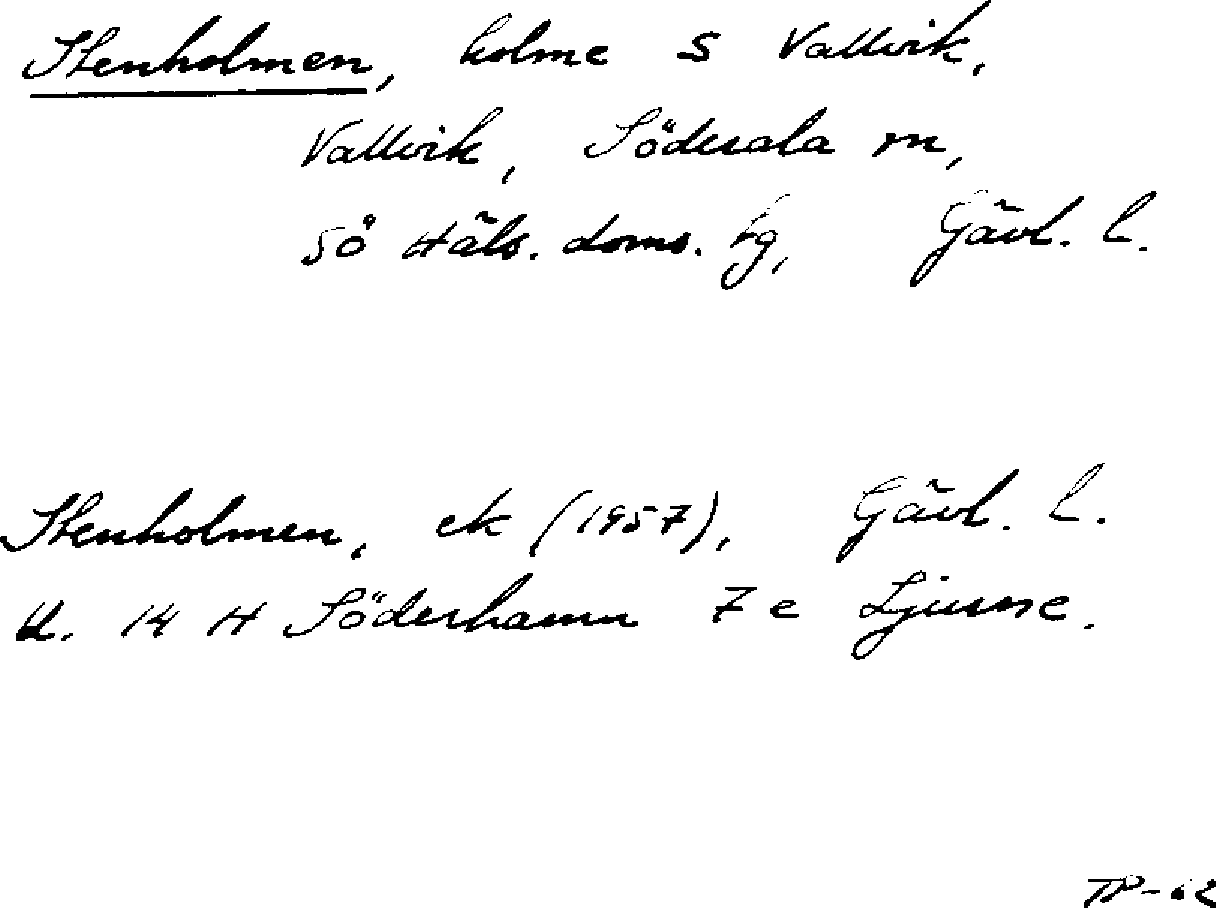 Stenholmen, holme S Vallvik,
Vallvik, Söderala sn,
Sö Häls. doms. tg, Gävl. l.
Stenholmen, ek (1957), Gävl. l.
U. 14 H Söderhamn 7 e Ljusne.
TP-62